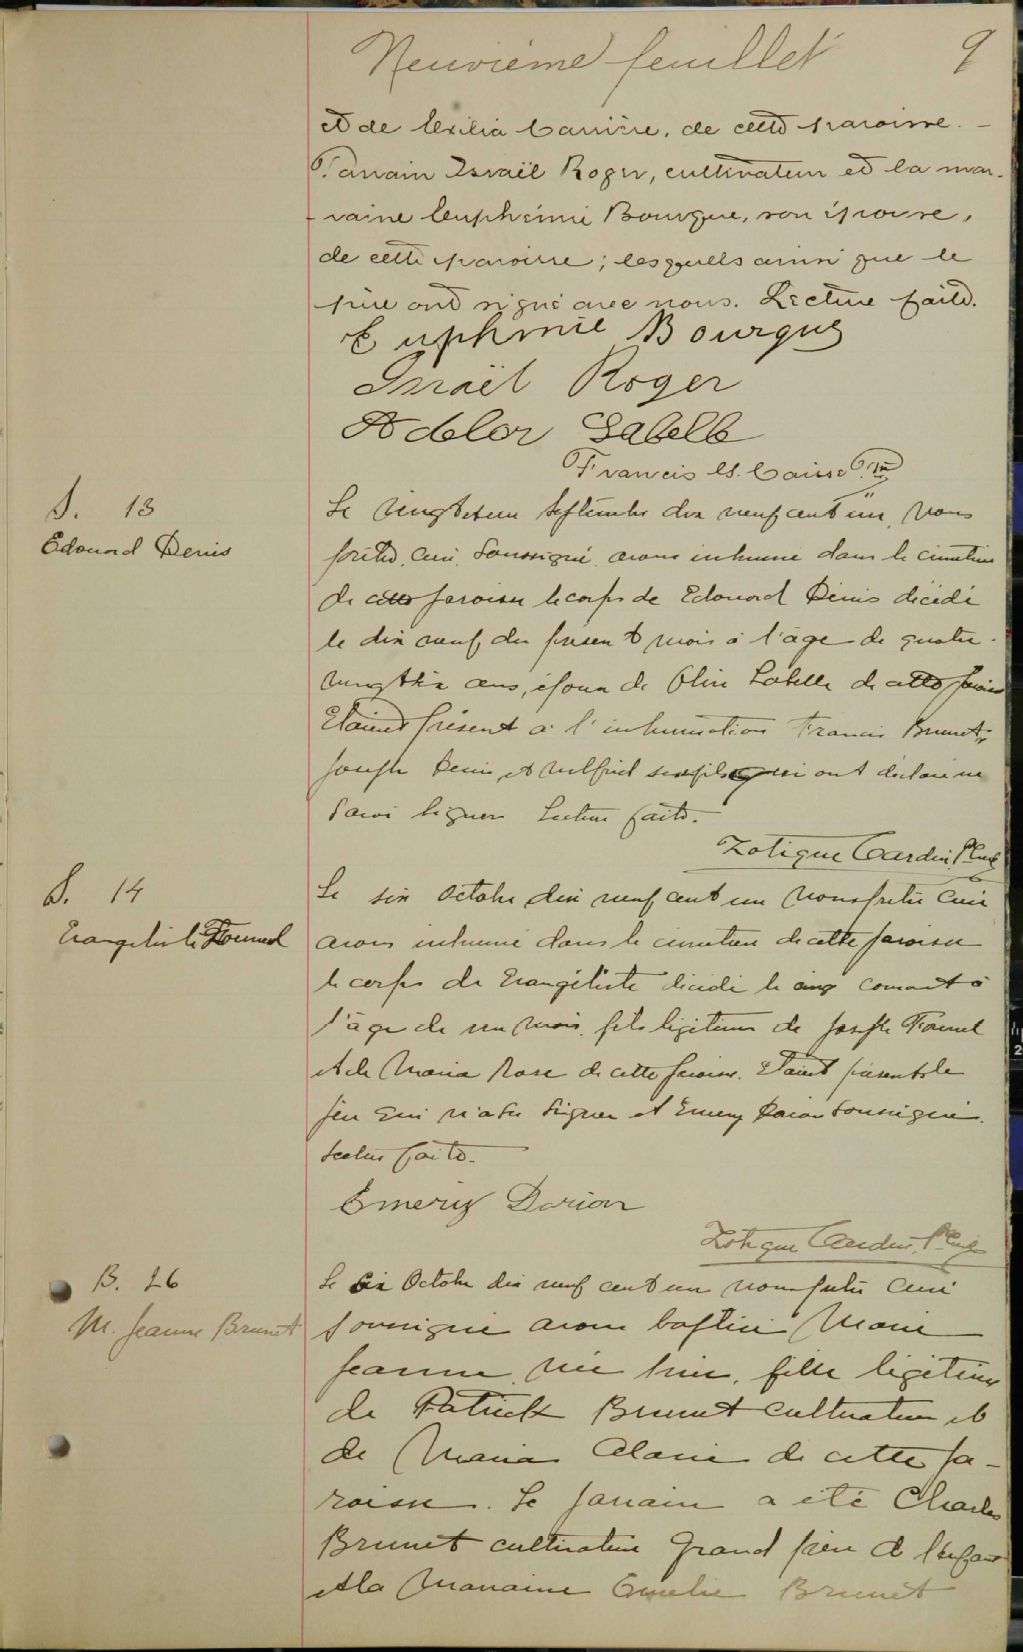 Neuvième feuillet 9
et de Exilia Carrière, de cette paroisse. -
Parrain Israël Roger, cultivateur et la mar-
-raine Euphémie Bourque, son épouse,
de cette paroisse; lesquels ainsi que le
père ont signé avec nous. Lecture faite.
Euphmie Bourque
Israël Roger
Adelor Labelle
Francis Caisse Ptr
S. 13
Edouard Denis
Le vingt et un Septembre dix neuf cent un, Nous
prêtre, Curé, Soussigné avons inhumé dans le cimetière
de cette paroisse le corps de Edouard Denis décédé
le dix neuf du présent mois à l'âge de quatre
vingt ans, époux de Olive Labelle de cette paroisse
Etaient présent à l'inhumation Francis Brunet,
Joseph Denis, et Wilfrid ses fils qui ont déclaré ne
savoir signer Lecture faite.
Zotique Cardin, Ptr Curé
S. 14
Evangeliste Fournel
Le six Octobre dix neuf cent un Nous prêtre Curé
avons inhumé dans le cimetière de cette paroisse
le corps de Evangéliste décédé le cinq courant à
l'âge de un mois, fils légitime de Joseph Fournel
et de Maria Rose de cette paroisse. Etaient présents le
père qui n'a su signer et Emery Dorion soussigné.
Lecture faite.
Emery Dorion
Zotique Cardin, Ptr Curé
B. 26
M. Jeanne Brunet
Le six Octobre dix neuf cent un nous prêtre Curé
soussigné avons baptisé Marie
Jeanne, née hier, fille légitime
de Patrick Brunet cultivateur et
de Maria Alarie de cette pa-
roisse. Le parrain a été Charles
Brunet cultivateur Grand père de l'enfant
et la Marraine Emelie Brunet